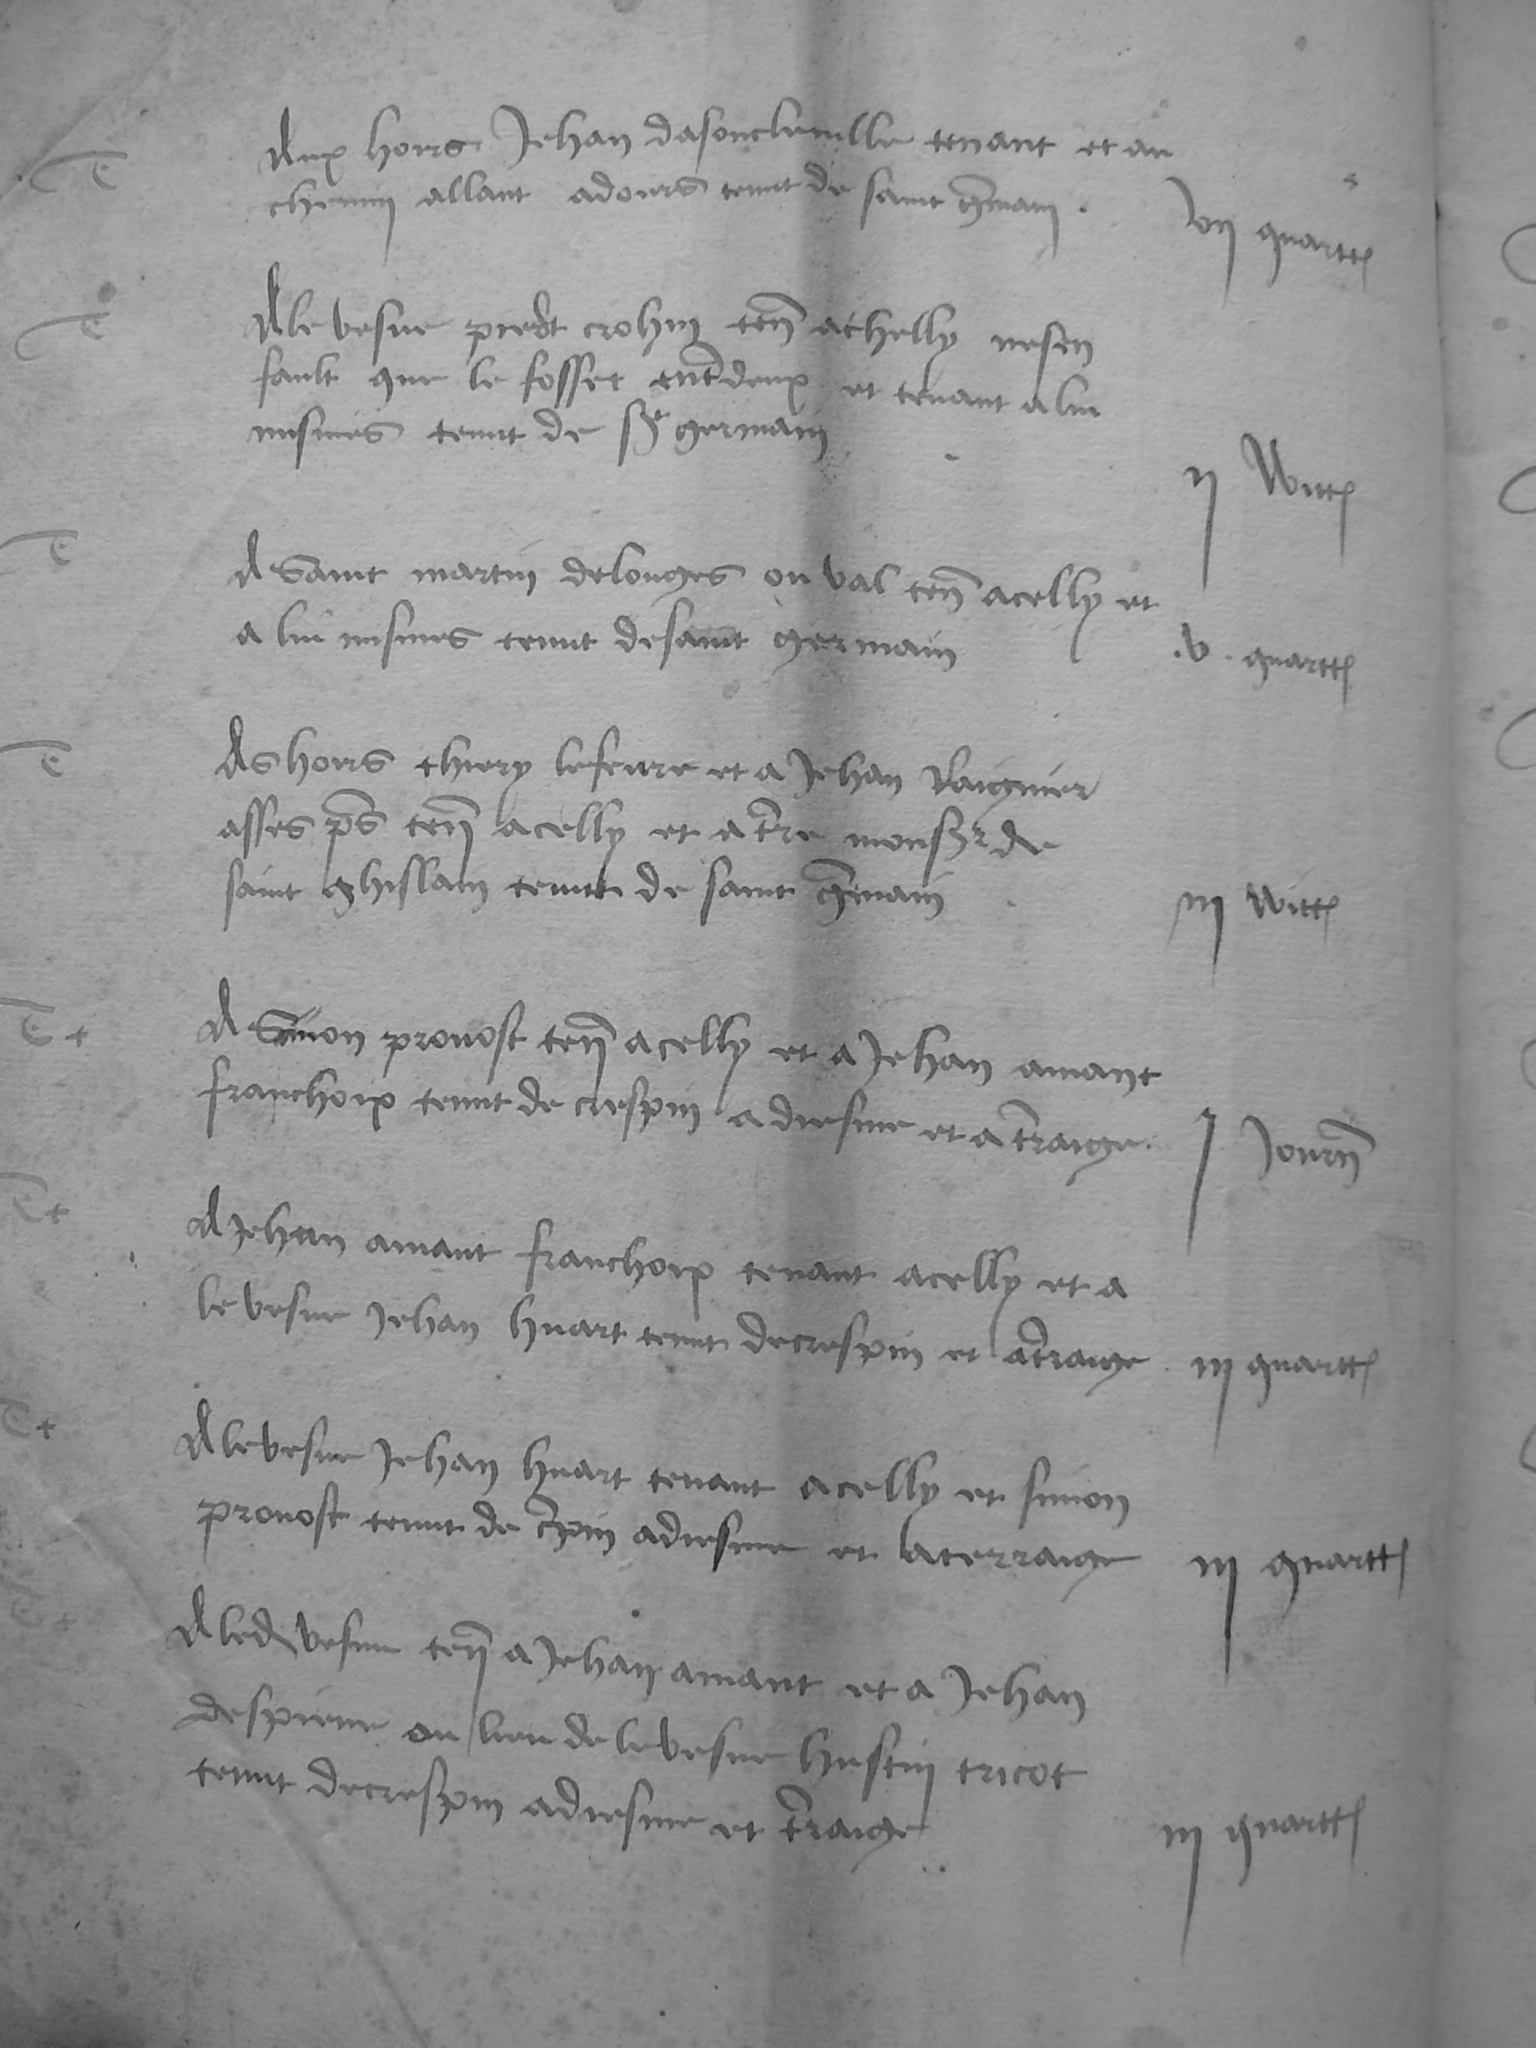 Aux hoirs Jehan dasonclevulle tenant et au
chemin allant adours tenut de saint gmain .
vij quartt
A le vesve piert crohin ten achelly nesen
fault que le fosset entdeux et tenant a lui
mismes tenut de st germain
ij witt
A Saint martin delonges ou val ten acelly et
a lui mismes tenut desaint germain
.v. quartt
As hoirs thiery lefevre et a Jehan
asses ps ten acelly et a tre monsr de
saint ghislain tenut de saint gmain
iij witt
A Simon provost ten acelly et a Jehan amant
franchoix tenut de crespin a diesme et a traige .
j Journ
A Jehan amant franchoix tenant acelly et a
le vesve Jehan huart tenut decrespin et atraige
iij quartt
A levesve Jehan huart tenant acelly et simon
provost tenut de cpin adiesme et aterraige
iij quartt
A led vesve ten a Jehan amant et a Jehan
despiene ou lieu de levesve hustin tricot
tenut decrespin adiesme et traige
iij quartt